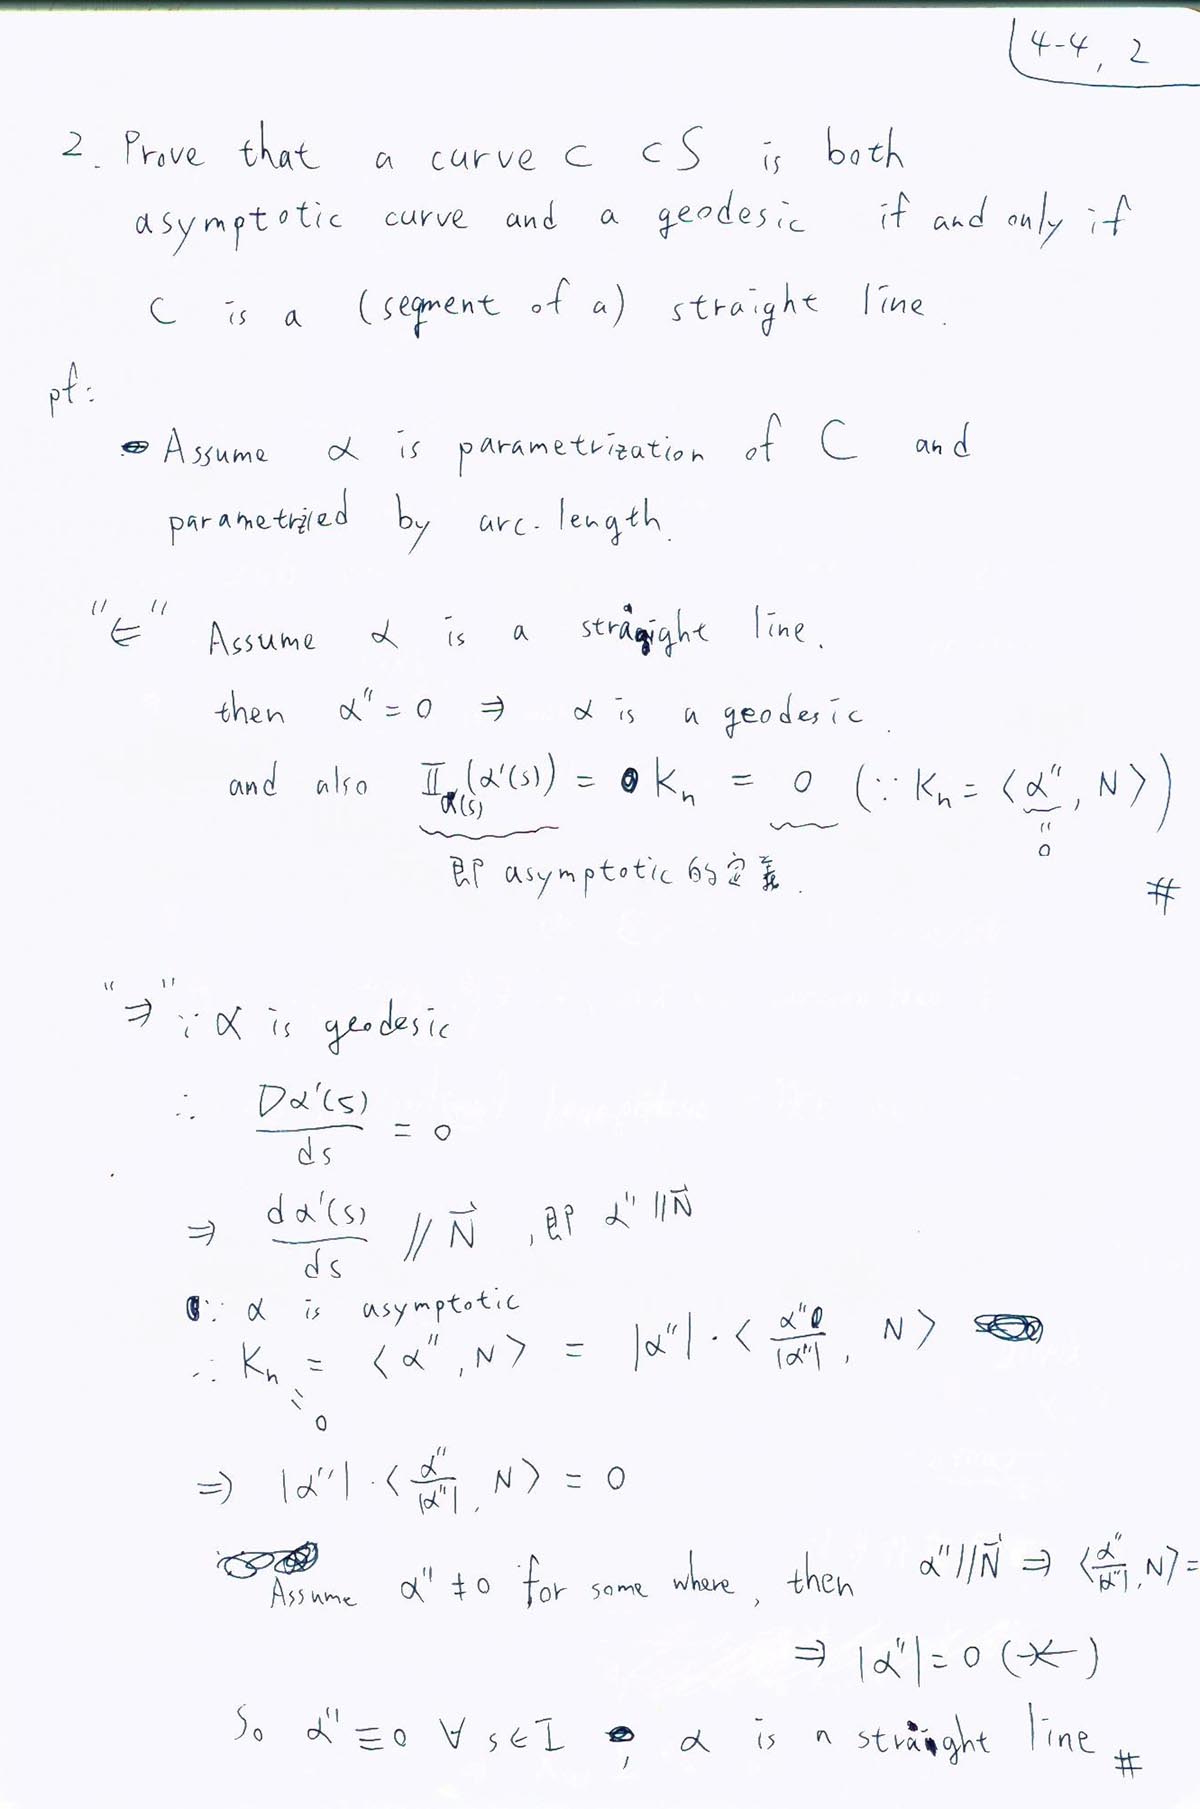 4-4, 2
2. Prove that a curve C ⊂ S is both
asymptotic curve and a geodesic if and only if
C is a (segment of a) straight line.
pf:
Assume α is parametrization of C and
parametrized by arc-length.
"⇐" Assume α is a straight line.
then α'' = 0 ⇒ α is a geodesic.
and also II_α(s)(α'(s)) = Kn = 0 (∵ Kn = <α'', N>)
" 0
即 asymptotic 的定義.
#
"⇒" ∵ α is geodesic
∴ Dα'(s)/ds = 0
⇒ dα'(s)/ds // N⃗, 即 α'' // N⃗
∵ α is asymptotic
∴ Kn = <α'', N> = |α''| · <α''/|α''|, N>
" 0
⇒ |α''| · <α''/|α''|, N> = 0
Assume α'' ≠ 0 for some where, then α'' // N⃗ ⇒ <α''/|α''|, N> =
⇒ |α''| = 0 (→←)
So α'' ≡ 0 ∀ s ∈ I, α is a straight line #